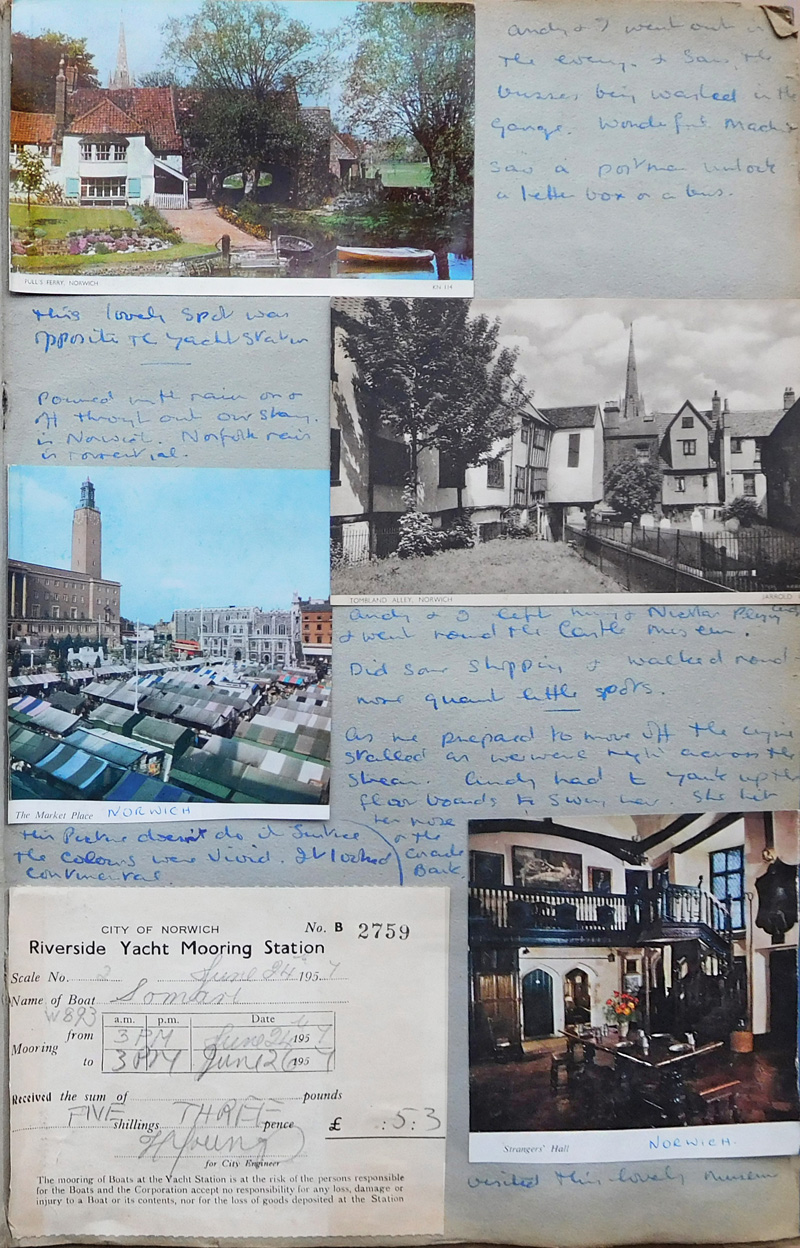 Andy & I went out in
the eveng. & Saw the
busses being washed in the
garage. Wonderful Machine
saw a postman unlock
a letter box on a bus.
PULL'S FERRY, NORWICH
KN 114
This lovely spot was
opposite the Yacht Station
Poured with rain on &
off throughout our stay.
in Norwich. Norfolk rain
is torrential.
TOMBLAND ALLEY, NORWICH
JARROLD
Andy & I left & 
& went round the Castle Museum.
Did some Shopping & walked round
more quaint little spots.
As we prepared to move off the engine
stalled as we were right across the
stream. Andy had to yank up the
floor boards to swing her. She hit
her nose
on the
Bank.
The Market Place NORWICH
This Picture doesn't do it Justice
the colours were vivid. It looked
Continental.
CITY OF NORWICH
No. B 2759
Riverside Yacht Mooring Station
Scale No. 2 June 24th 1957
Name of Boat Somari
W893
a.m. p.m. Date
Mooring from 3 PM June 24 1957
to 3 PM June 26 1957
Received the sum of pounds
FIVE shillings THREE pence £ :5:3
H Young
for City Engineer
The mooring of Boats at the Yacht Station is at the risk of the persons responsible
for the Boats and the Corporation accept no responsibility for any loss, damage or
injury to a Boat or its contents, nor for the loss of goods deposited at the Station
Strangers' Hall NORWICH.
visited this lovely museum